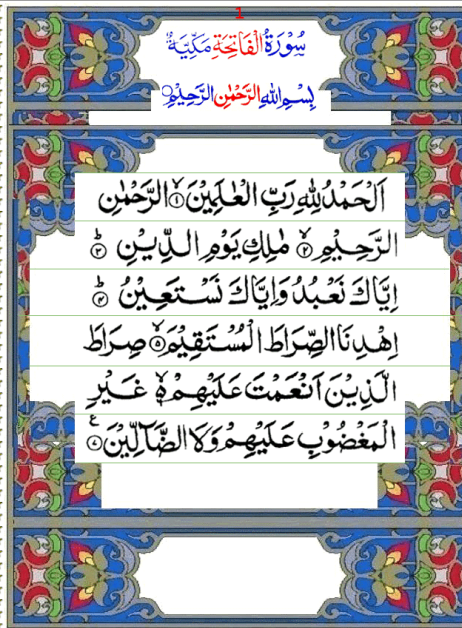 1
سُوْرَةُ الْفَاتِحَةِ مَكِّيَّةٌ
بِسْمِ اللّٰهِ الرَّحْمٰنِ الرَّحِيْمِ
اَلْحَمْدُ لِلّٰهِ رَبِّ الْعٰلَمِيْنَ ۙ﴿۱﴾ الرَّحْمٰنِ
الرَّحِيْمِ ۙ﴿۲﴾ مٰلِكِ يَوْمِ الدِّيْنِ ؕ﴿۳﴾
اِيَّاكَ نَعْبُدُ وَاِيَّاكَ نَسْتَعِيْنُ ؕ﴿۴﴾
اِهْدِنَا الصِّرَاطَ الْمُسْتَقِيْمَ ۙ﴿۵﴾ صِرَاطَ
الَّذِيْنَ اَنْعَمْتَ عَلَيْهِمْ ۙ۬﴿۶﴾ غَيْرِ
الْمَغْضُوْبِ عَلَيْهِمْ وَلَا الضَّآلِّيْنَ ﴿۷﴾ ع